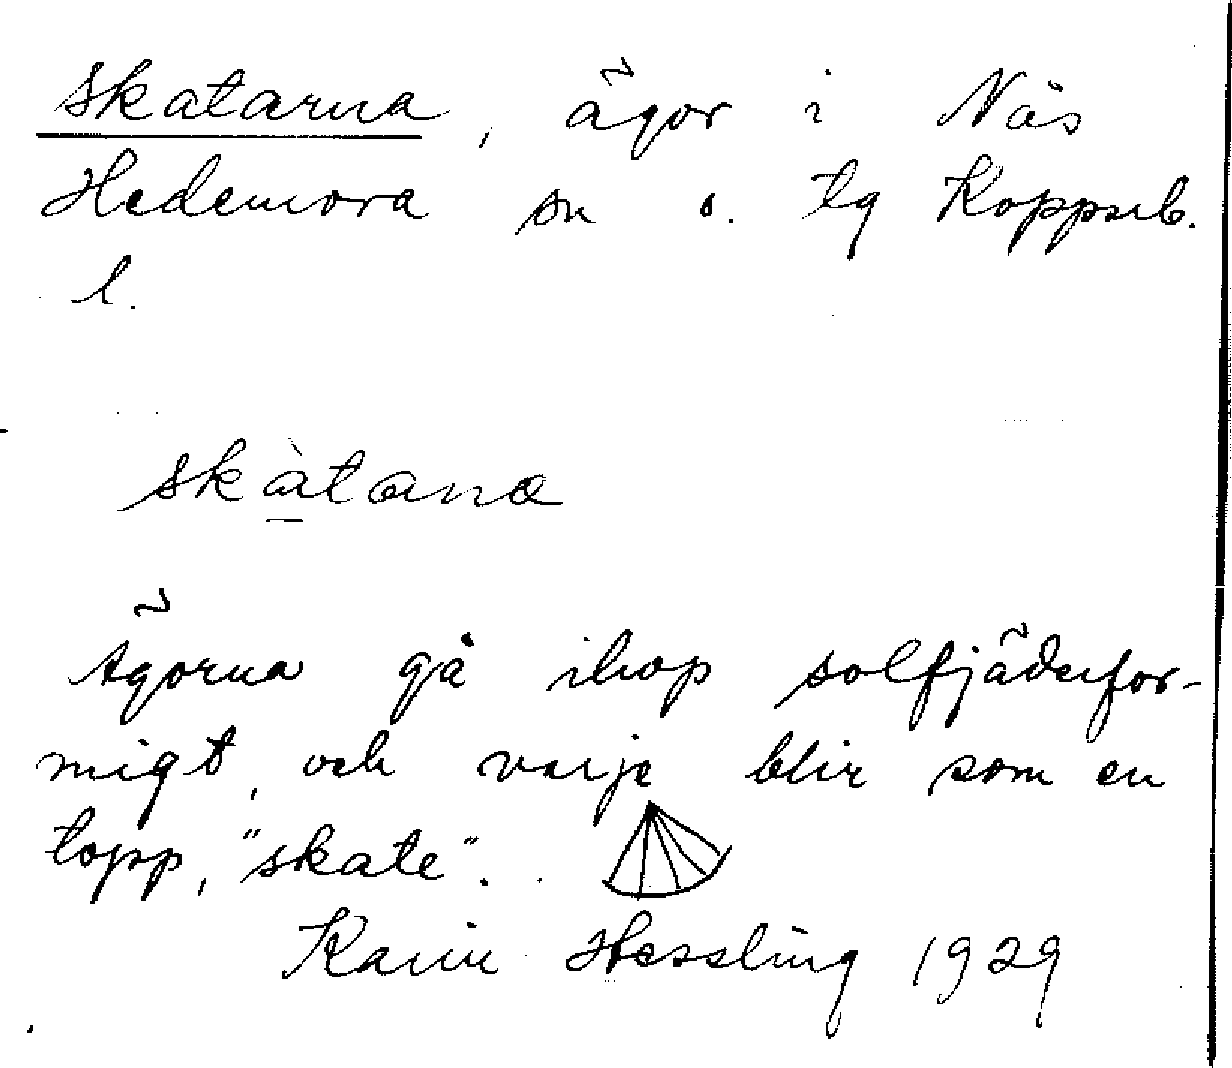 Skatarna, ägor i Näs
Hedemora sn o. tg Kopparb.
l.
skàtana
Ägorna gå ihop solfjäderfor-
migt, och varje blir som en
topp, "skate".
Karin Hessling 1929